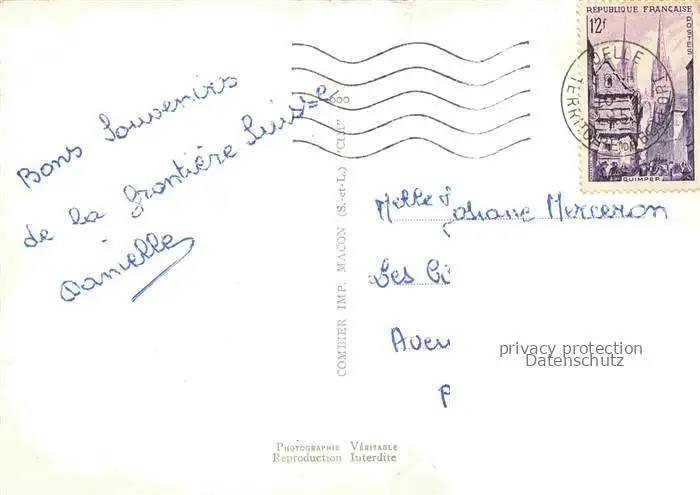 Bons Souvenirs
de la frontière Suisse
Danielle
COMBIER IMP. MACON (S.-et-L.) "CIM"
RÉPUBLIQUE FRANÇAISE
12f
POSTES
QUIMPER
Melle Josiane Merceron
Les
Aven
privacy protection
Datenschutz
PHOTOGRAPHIE VÉRITABLE
Reproduction Interdite